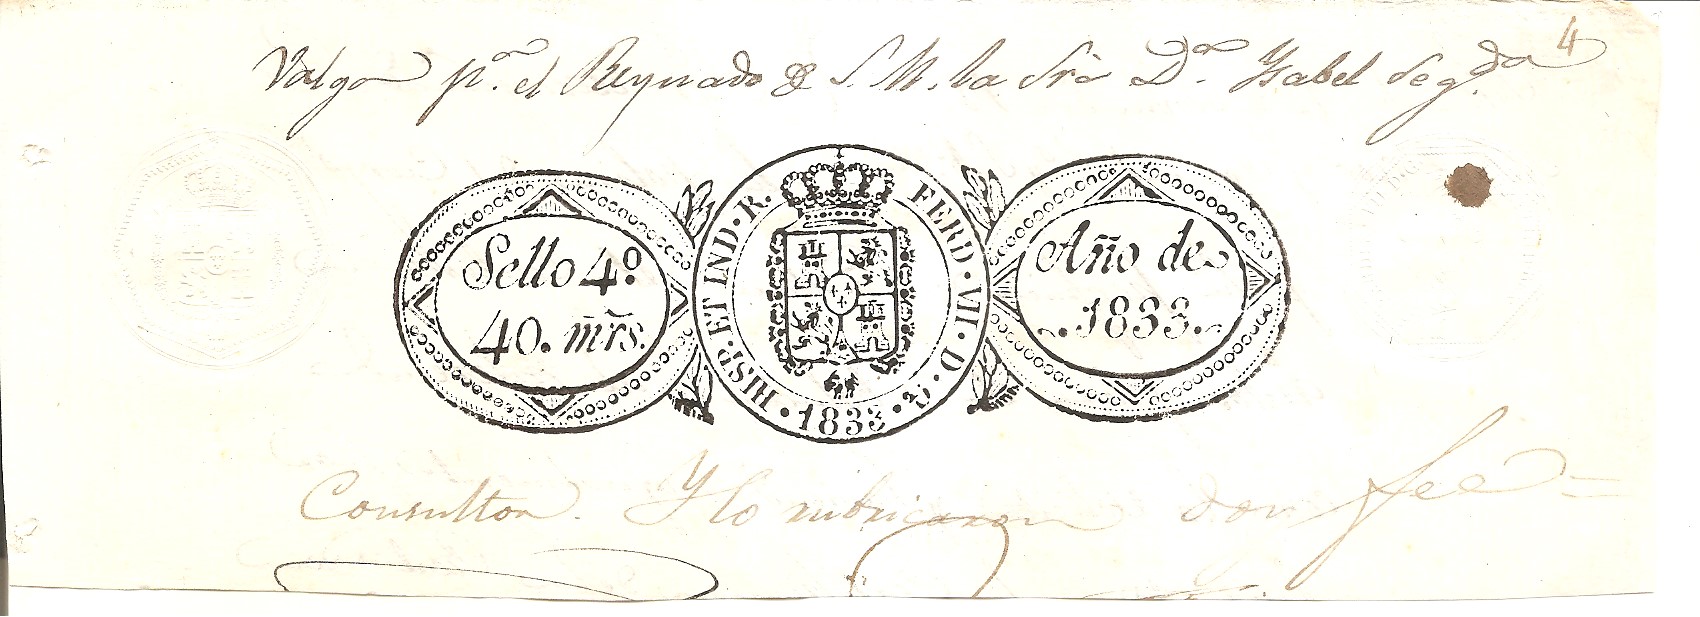 4
Valga p.r el Reynado de S. M. la Sra D.a Ysabel Seg.da
Sello 4º
40. mrs.
HISP. ET IND. R.
FERD. VII. D. G.
• 1833 •
Año de
1833.
Consultor. Y lo rubricaron doy fee=